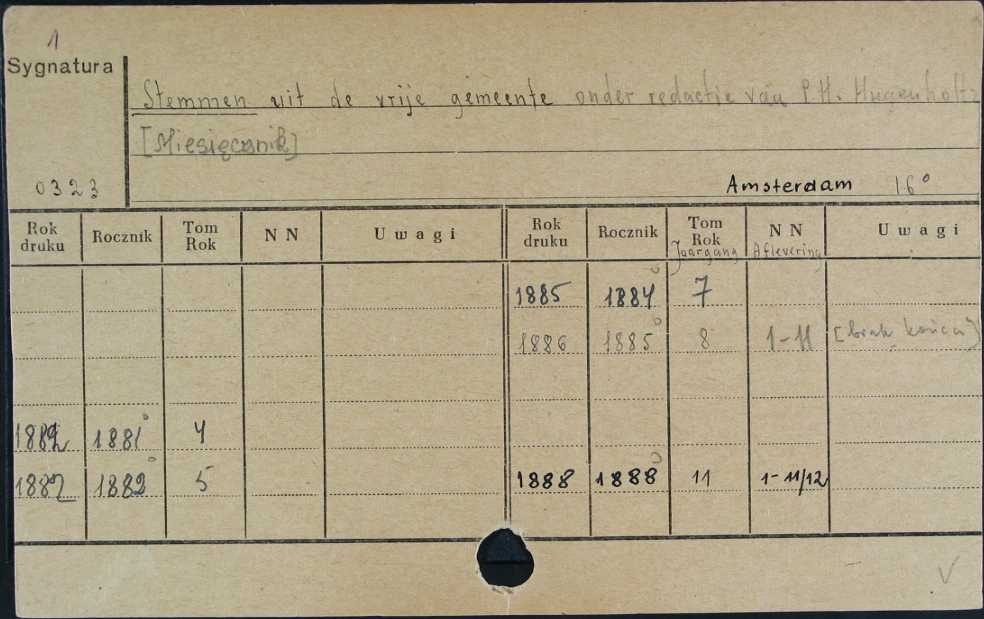 1
Sygnatura
Stemmen uit de vrije gemeente onder redactie van P.H. Hugenholtz
[Miesięcznik]
0323
Amsterdam 16°
Rok druku Rocznik Tom Rok NN Uwagi Rok druku Rocznik Tom Rok NN Uwagi
Jaargang Aflevering
1885 1884 7
1886 1885 8 1-11 [brak końca]
1882 1881 4
1882 1882 5 1888 1888 11 1-11/12